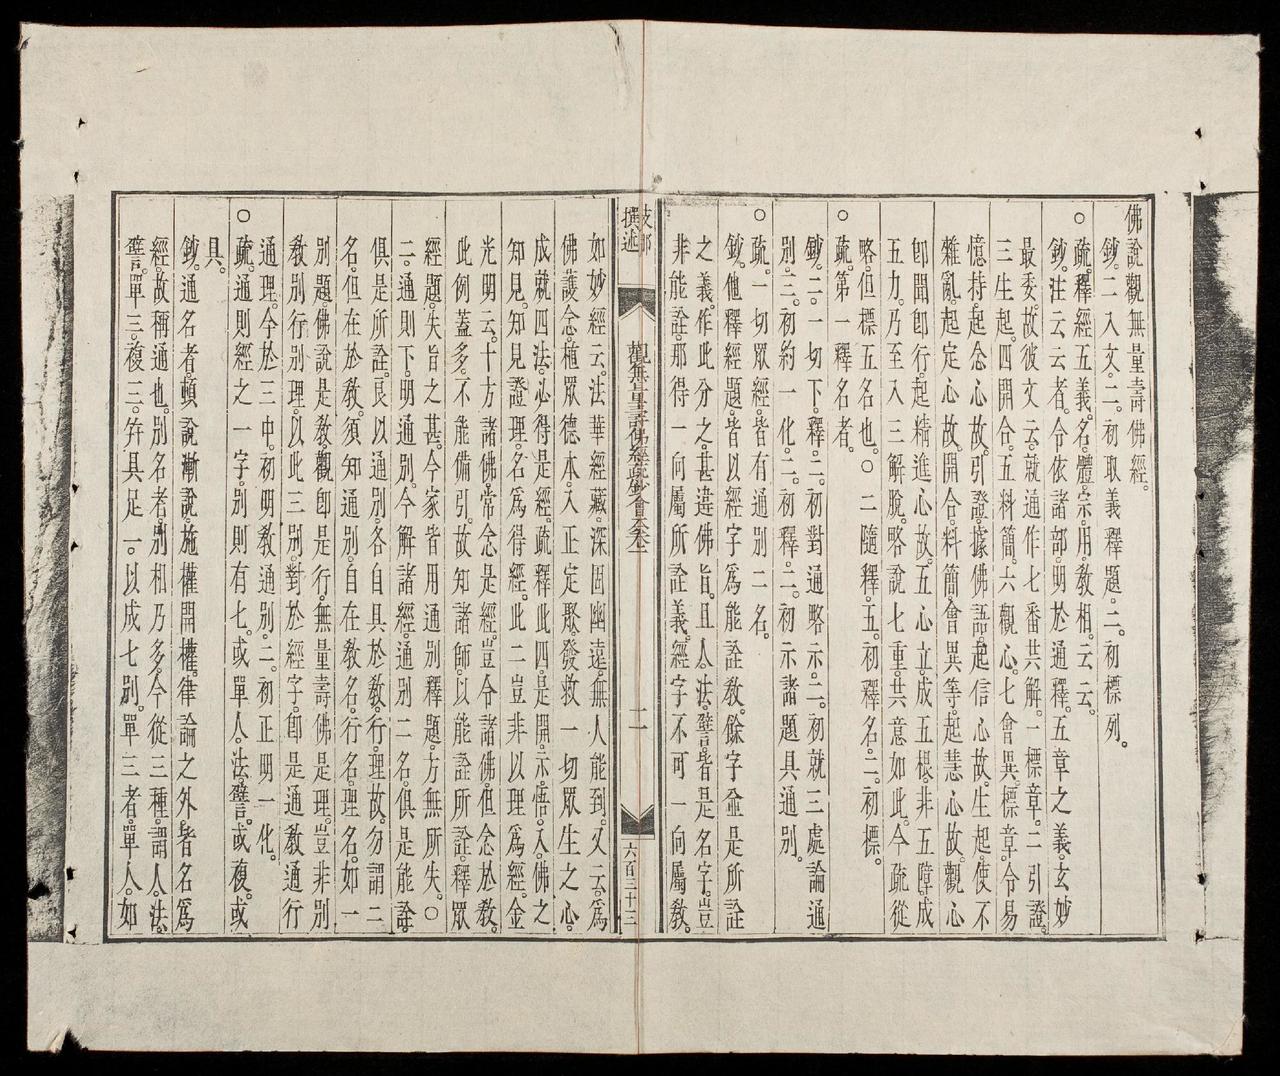 佛說觀無量壽佛經。
鈔。二入文。二。初取義釋題。二。初標列。
○疏。釋經五義。名。體。宗。用。教相。云云。
鈔。注云云者。令依諸部。明於通釋。五章之義。玄妙
最委。故彼文云。就通作七番共解。一標章。二引證。
三生起。四開合。五料簡。六觀心。七會異。標章。令易
憶持。起念心故。引證。據佛語。起信心故。生起。使不
雜亂。起定心故。開合。料簡。會異等。起慧心故。觀心。
即聞即行。起精進心故。五心立。成五根。非五障。成
五力。乃至入三解脫。略說七重。共意如此。今疏從
略。但標五名也。○二隨釋。五。初釋名。二。初標。
○疏。第一釋名者。
鈔。二。一切下。釋。二。初對通略示。二。初就三處論通
別。三。初約一化。二。初釋。二。初示諸題具通別。
疏。一切眾經。皆有通別二名。
○鈔。他釋經題。皆以經字爲能詮教。餘字竝是所詮
之義。作此分之。甚違佛旨。且人。法。譬。皆是名字。豈
非能詮。那得一向屬所詮義。經字不可一向屬教。
支那
撰述
觀無量壽佛經疏鈔會本卷一
二
六百三十三
如妙經云。法華經藏。深固幽遠。無人能到。又云。爲
佛護念。植眾德本。入正定聚。發救一切眾生之心。
成就四法。必得是經。疏釋此四。是開。示。悟。入。佛之
知見。知見證理。名爲得經。此二豈非以理爲經。金
光明云。十方諸佛。常念是經。豈令諸佛。但念於教。
此例蓋多。不能備引。故知諸師。以能詮所詮。釋眾
經題。失旨之甚。今家皆用通別釋題。方無所失。○
二。通則下。明通別。今解諸經。通別二名。俱是能詮。
俱是所詮。良以通別。各自具於教。行。理故。勿謂二
名。但在於教。須知通別。自在教名。行名。理名。如一
別題。佛說是教。觀即是行。無量壽佛是理。豈非別
教別行別理。以此三別。對於經字。即是通教通行
通理。今於三中。初明教通別。二。初正明一化。
○疏。通則經之一字。別則有七。或單人。法。譬。或複。或
具。
鈔。通名者。頓說漸說。施權開權。律論之外。皆名爲
經。故稱通也。別名者。別相乃多。今從三種。謂人。法。
譬。單三。複三。竝具足一。以成七別。單三者。單人。如